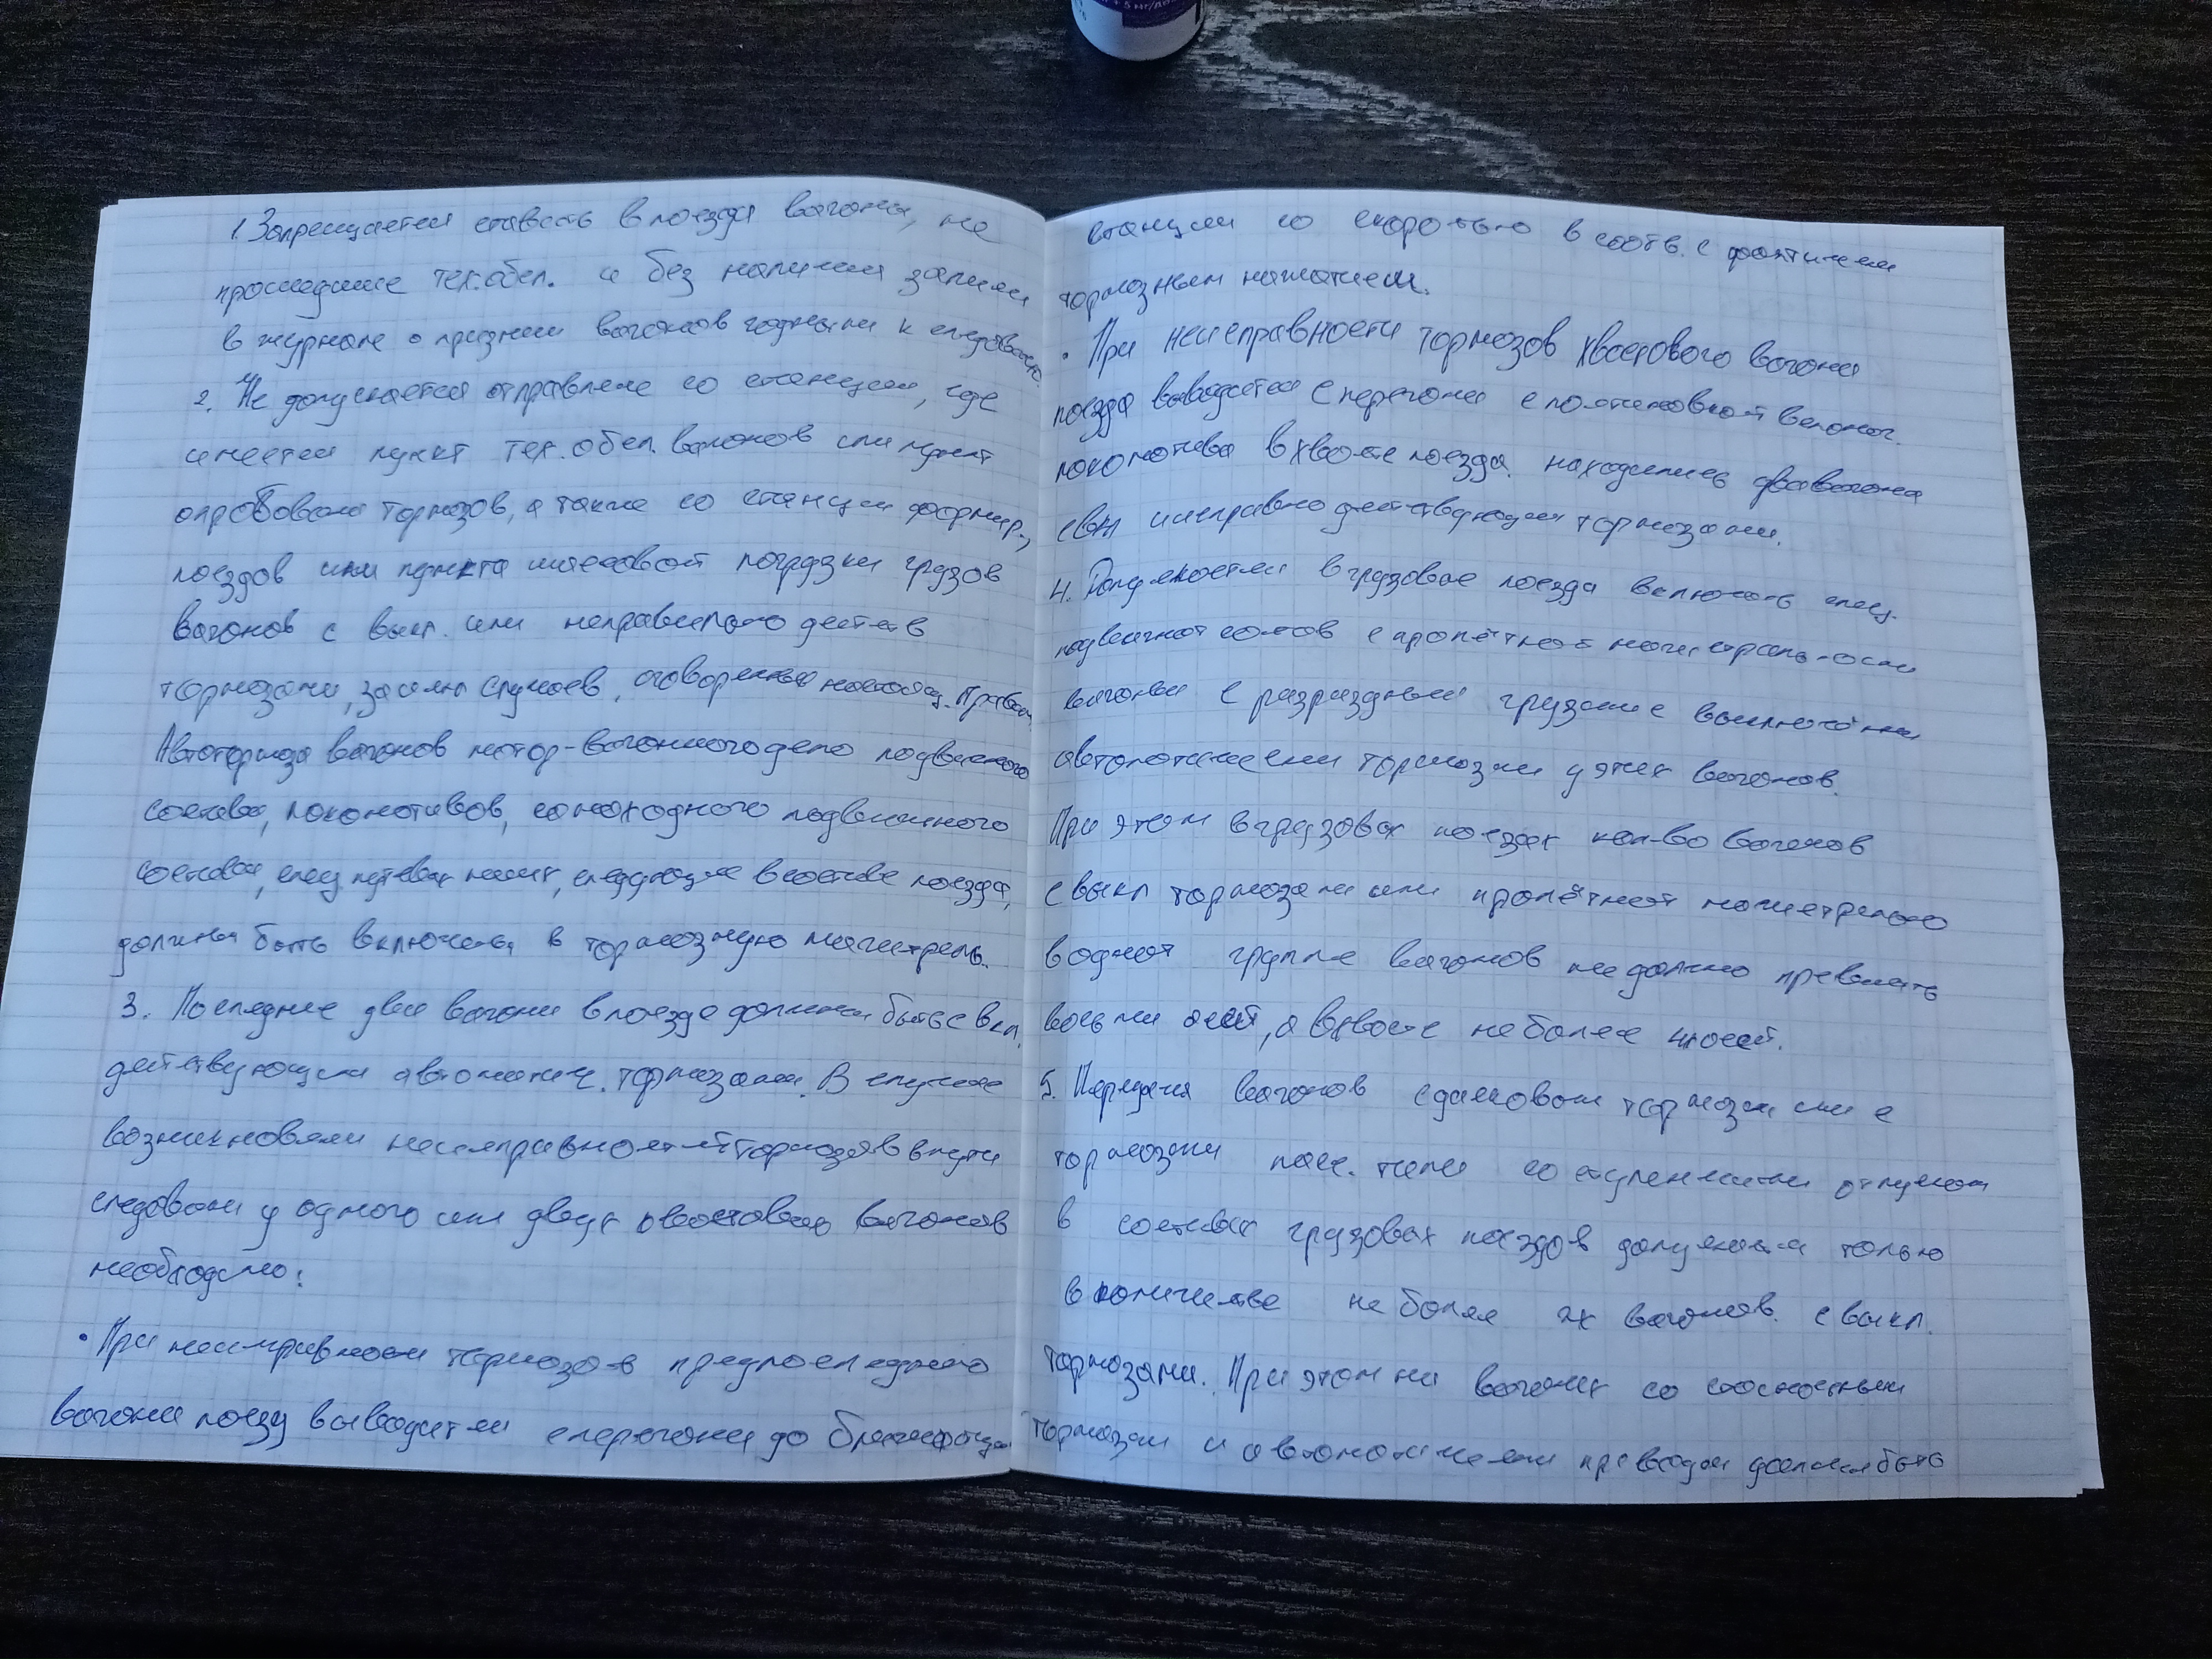 + 5 мг/дo
1. Запрещается ставить в поезда вагоны, не
прошедшие тех.обсл. и без наличия записи
в журнале о признии вагонов годными к следованию.
2. Не допускается отправление со станции, где
имеется пункт тех.обсл. вагонов или пункт
опробования тормозов, а также со станции формир.,
поездов или пункта массовой погрузки грузов
вагонов с выкл. или неправильно действ
тормозами, за искл случаев, оговоренных настоящ. Правил
Автотормоза вагонов мотор-вагонного депо подвижного
состава, локомотивов, самоходного подвижного
состава, спец путевых машин, следующие в составе поезда,
должны быть включены в тормозную магистраль.
3. Последние два вагона в поезде должны быть с вкл.
действующими автоматич. тормозами. В случае
возникновения неисправностей тормозов в пути
следования у одного или двух хвостовых вагонов
необходимо:
• При неисправности тормозов предпоследнего
вагона поезд выводится с перегона до ближайшей
станции со скоростью в соотв. с фактическим
тормозным нажатием.
• При неисправности тормозов хвостового вагона
поезда выводится с перегона с постановкой вспомог.
локомотива в хвосте поезда. находились два вагона
с вкл исправно действующими тормозами.
4. Допускается в грузовые поезда включать спец.
подвижной состав с пролётной магистралью
вагоны с разрядными грузами с выключенными
автоматическими тормозами у этих вагонов.
При этом в грузовых поездах кол-во вагонов
с выкл тормозами или пролётной магистралью
в одной группе вагонов не должно превышать
восьми осей, а в хвосте не более 4 осей.
5. Передача вагонов с дисковым тормозом или с
тормозами пасс. типа со ступенчатым отпуском
в составах грузовых поездов допускается только
в количестве не более 2х вагонов. с выкл.
тормозами. При этом на вагонах со стояночным
тормозом и автоматическим приводом должны быть